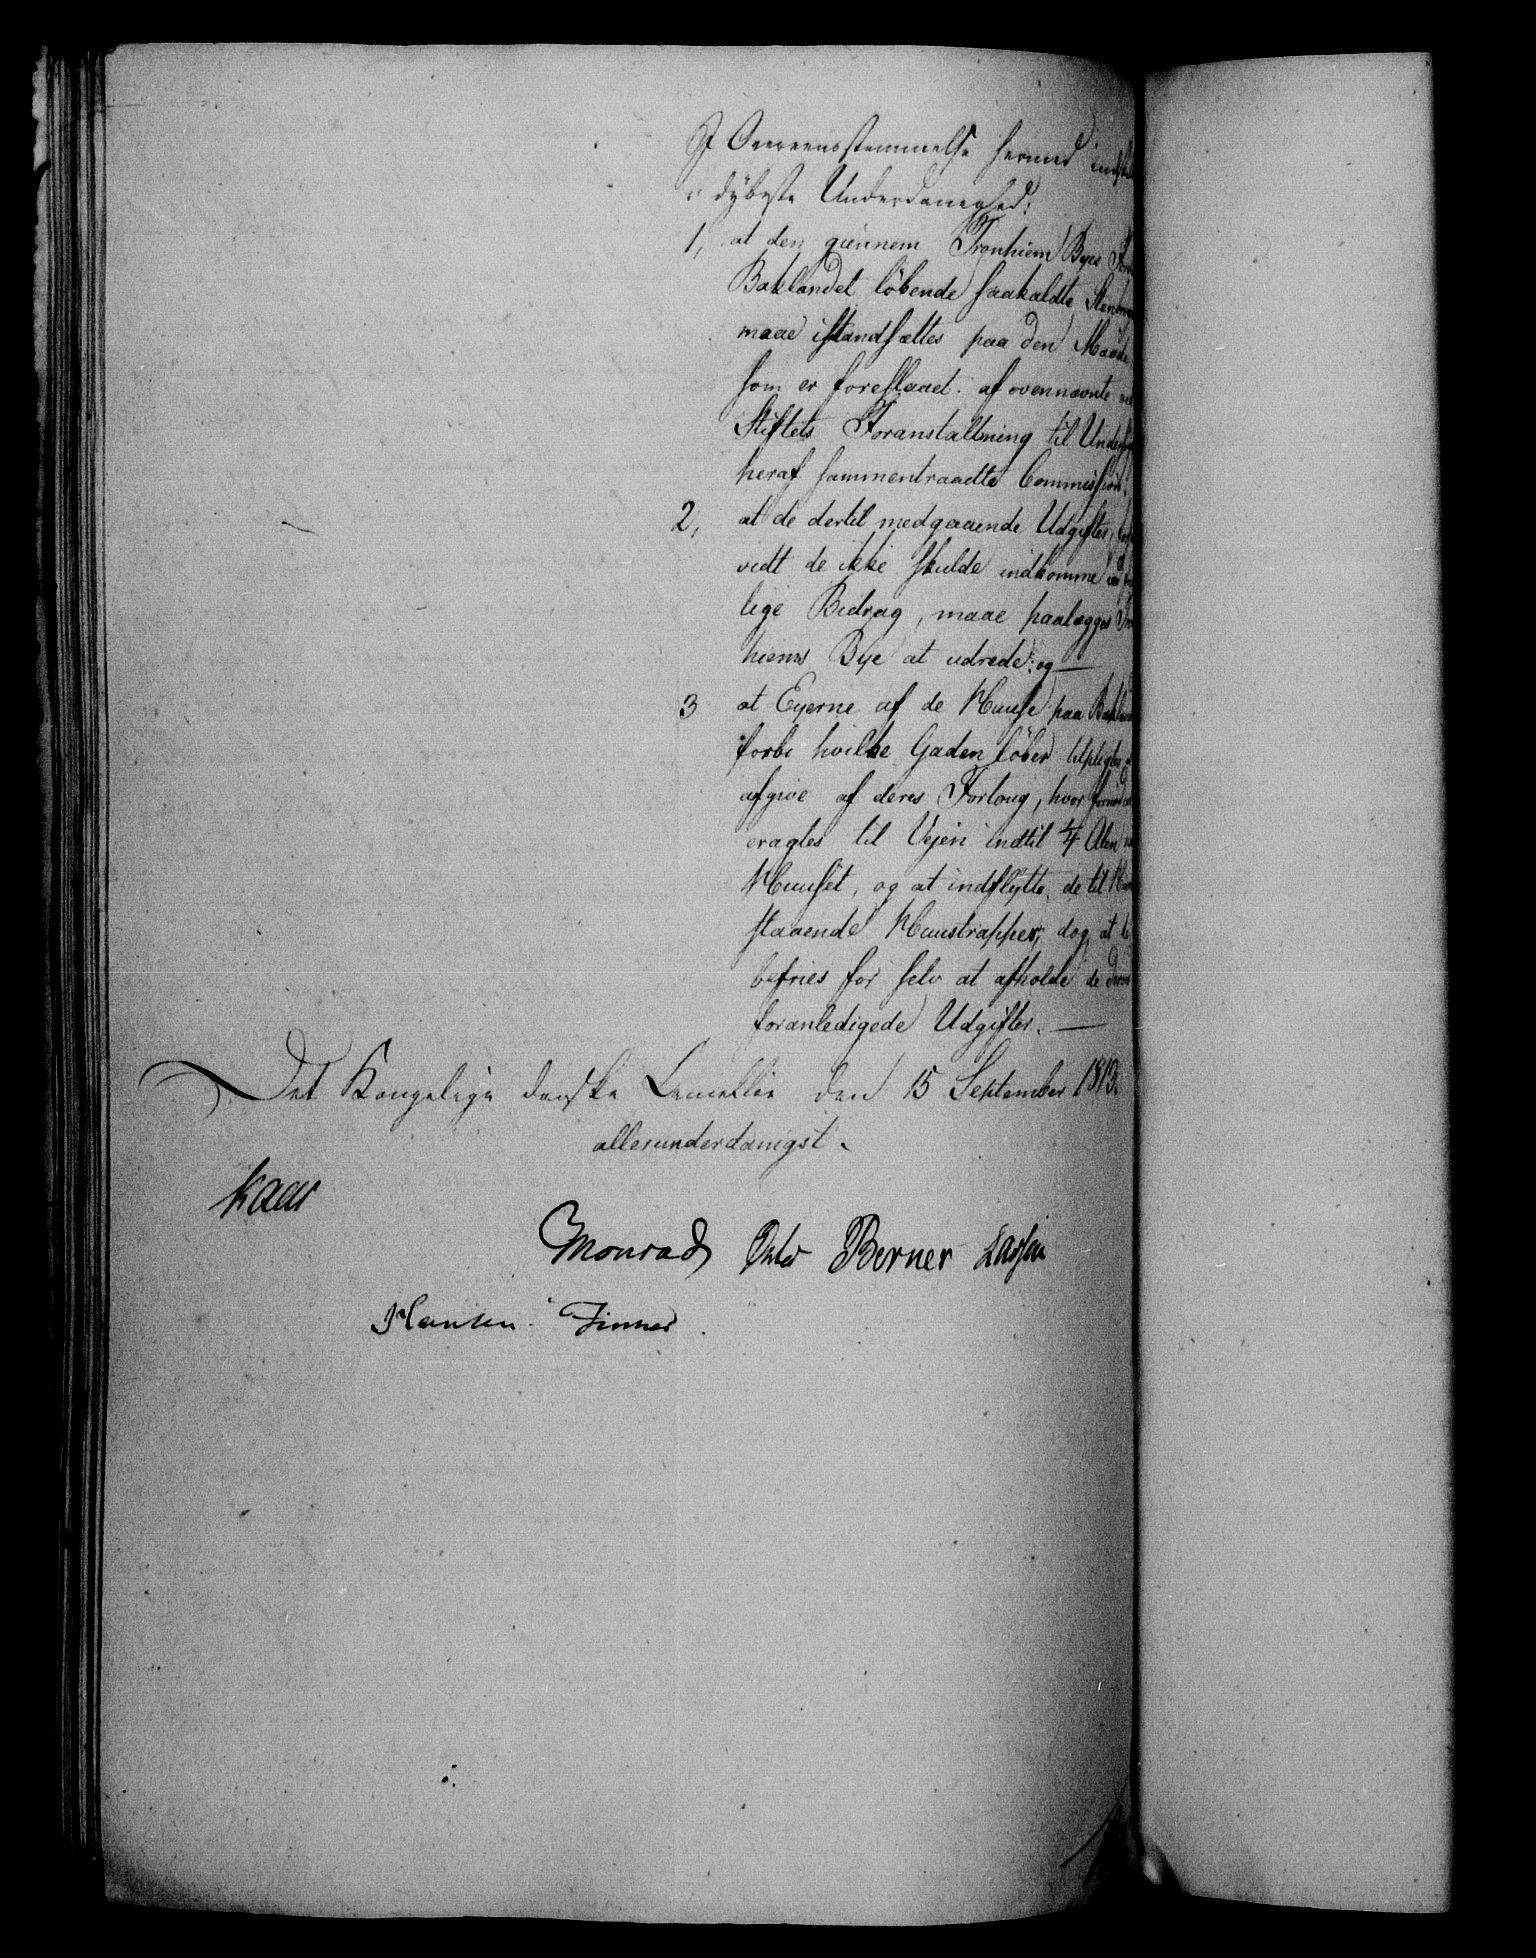 I Overeensstemmelse hermed
i dybeste Underdanighed:
1, at den giennem Tronhiem Byes
Baklandet löbende saakaldte
maae istandsættes paa den Maade
som er foreslaaet af ovennævnte
Stiftets Foranstaltning til
heraf sammentraadte Commission.
2, at de dertil medgaaende Udgifter,
vidt de ikke skulde indkomme
lige Bidrag, maae paalægges
hiems Bye at udrede: og —
3 at Eyerne af de Huuse paa
forbi hvilke Gaden löber tilpligtes
afgive af deres Fortoug, hvor
eragtes til Vejen indtil Alen
Huuset, og at indflytte de til
staaende Huustrapper, dog at
befries for selv at afholde de
foranledigede Udgifter. —
Det Kongelige danske Cancellie den 15 September 1813.
allerunderdanigst.
Kaas
Monrad Berner Lassen
Hansen.